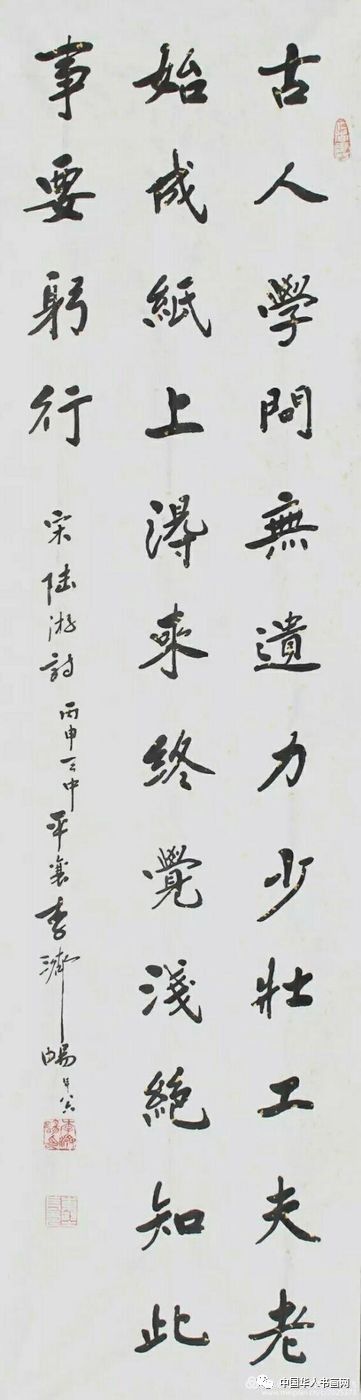 古人學問無遺力少壯工夫老
始成紙上得来終覺淺絶知此
事要躬行
宋陸游詩丙申之中平襄李濟暘
中国华人书画网